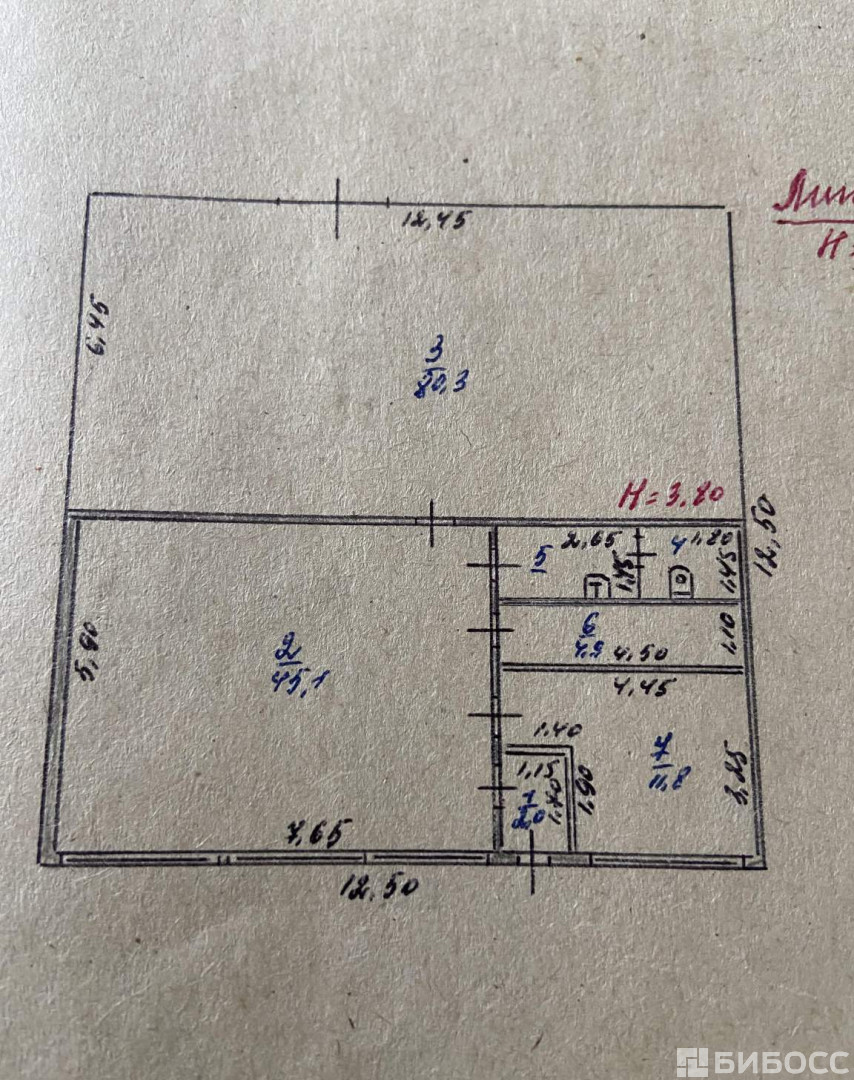 Лит
Н=
12,45
6,45
3
80,3
Н=3,80
12,50
2,65
4
1,80
5
1,45
1,45
6
4,9
4,50
1,10
5,90
2
45,1
4,45
1,40
7
11,8
3,25
1,15
1,70
1,90
1
2,0
7,65
12,50
БИБОСС